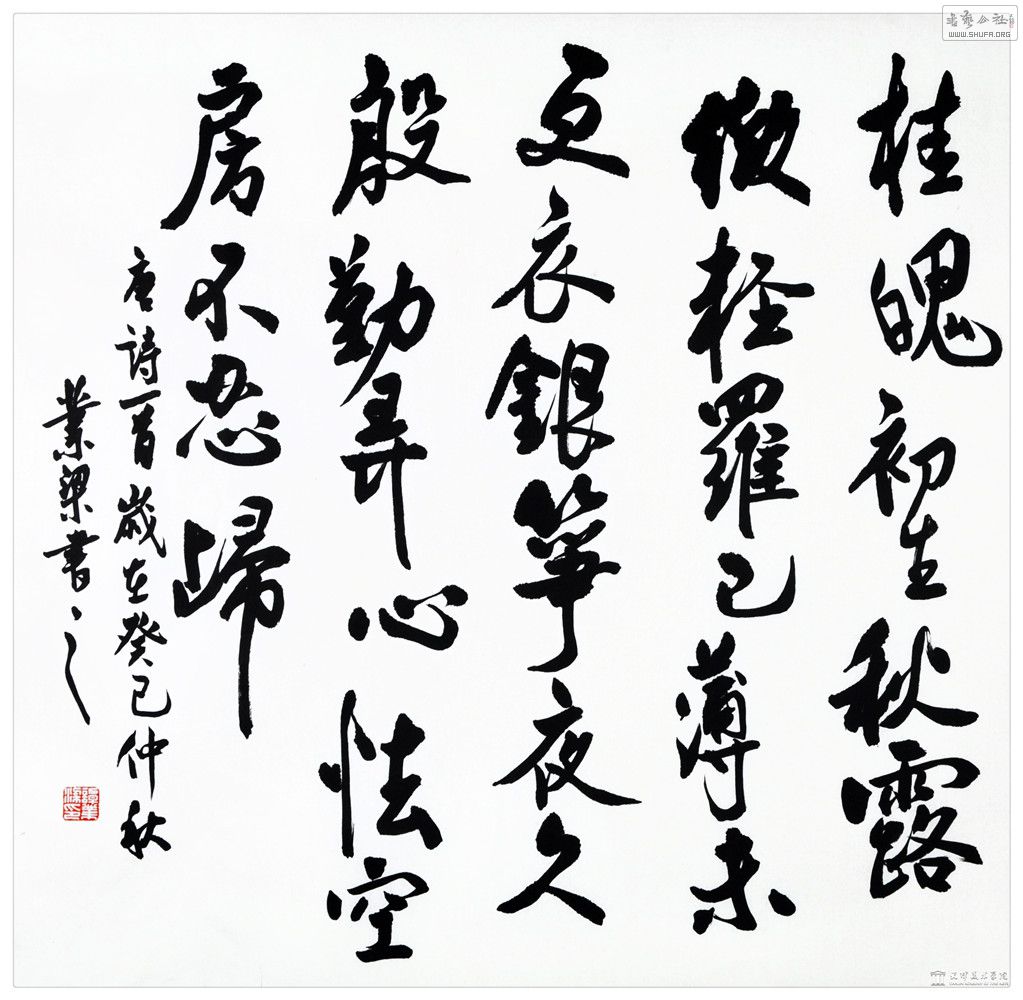 桂魄初生秋露
微輕羅已薄未
更衣銀箏夜久
殷勤弄心怯空
房不忍歸
唐詩一首歲在癸巳仲秋
業梁書之
WWW.SHUFA.ORG